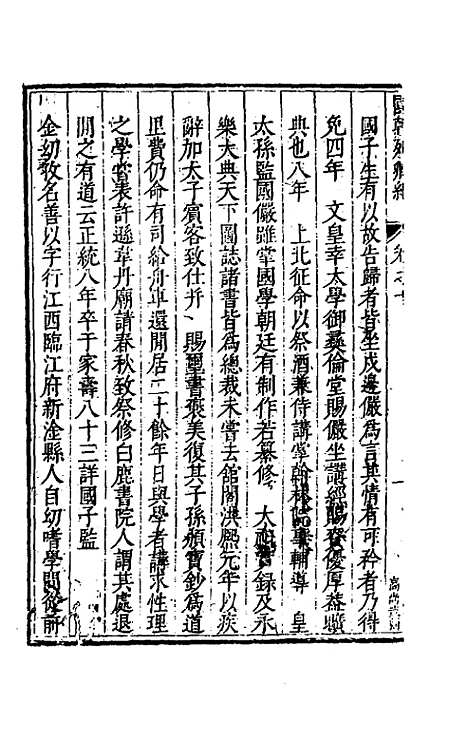 國子生有以故告歸者皆坐戍邊儼爲言其情有可矜者乃得
免四年　文皇幸太學御彝倫堂賜儼坐講經賜賚優厚蓋曠
典也八年　上北征命以祭酒兼侍講掌翰林院事輔導　皇
太孫監國儼雖掌國學朝廷有制作若纂修　太祖實錄及永
樂大典天下圖誌諸書皆爲總裁未嘗去館閣洪熙元年以疾
辭加太子賓客致仕并　賜璽書褒美復其子孫頒寶鈔爲道
里費仍命有司給舟車還閒居二十餘年日與學者講求性理
之學嘗表許遜韋丹廟請春秋致祭修白鹿書院人謂其處退
閒之有道云正統八年卒于家壽八十三詳國子監
金幼孜名善以字行江西臨江府新淦縣人自幼嗜學問從前